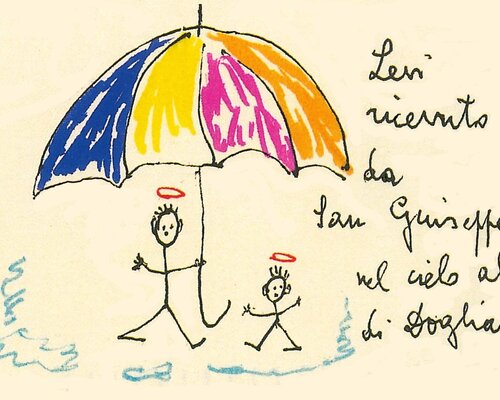 Levi
ricevuto
da
San Giuseppe
nel cielo al
di Doglia